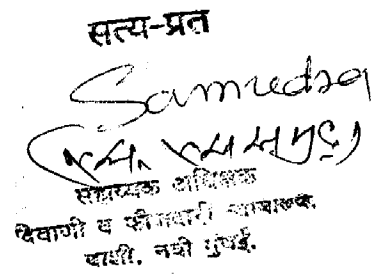 सत्य-प्रत
Samudra
सहाय्यक अधिक्षक
दिवाणी व फौजदारी न्यायालय,
वाशी, नवी मुंबई.